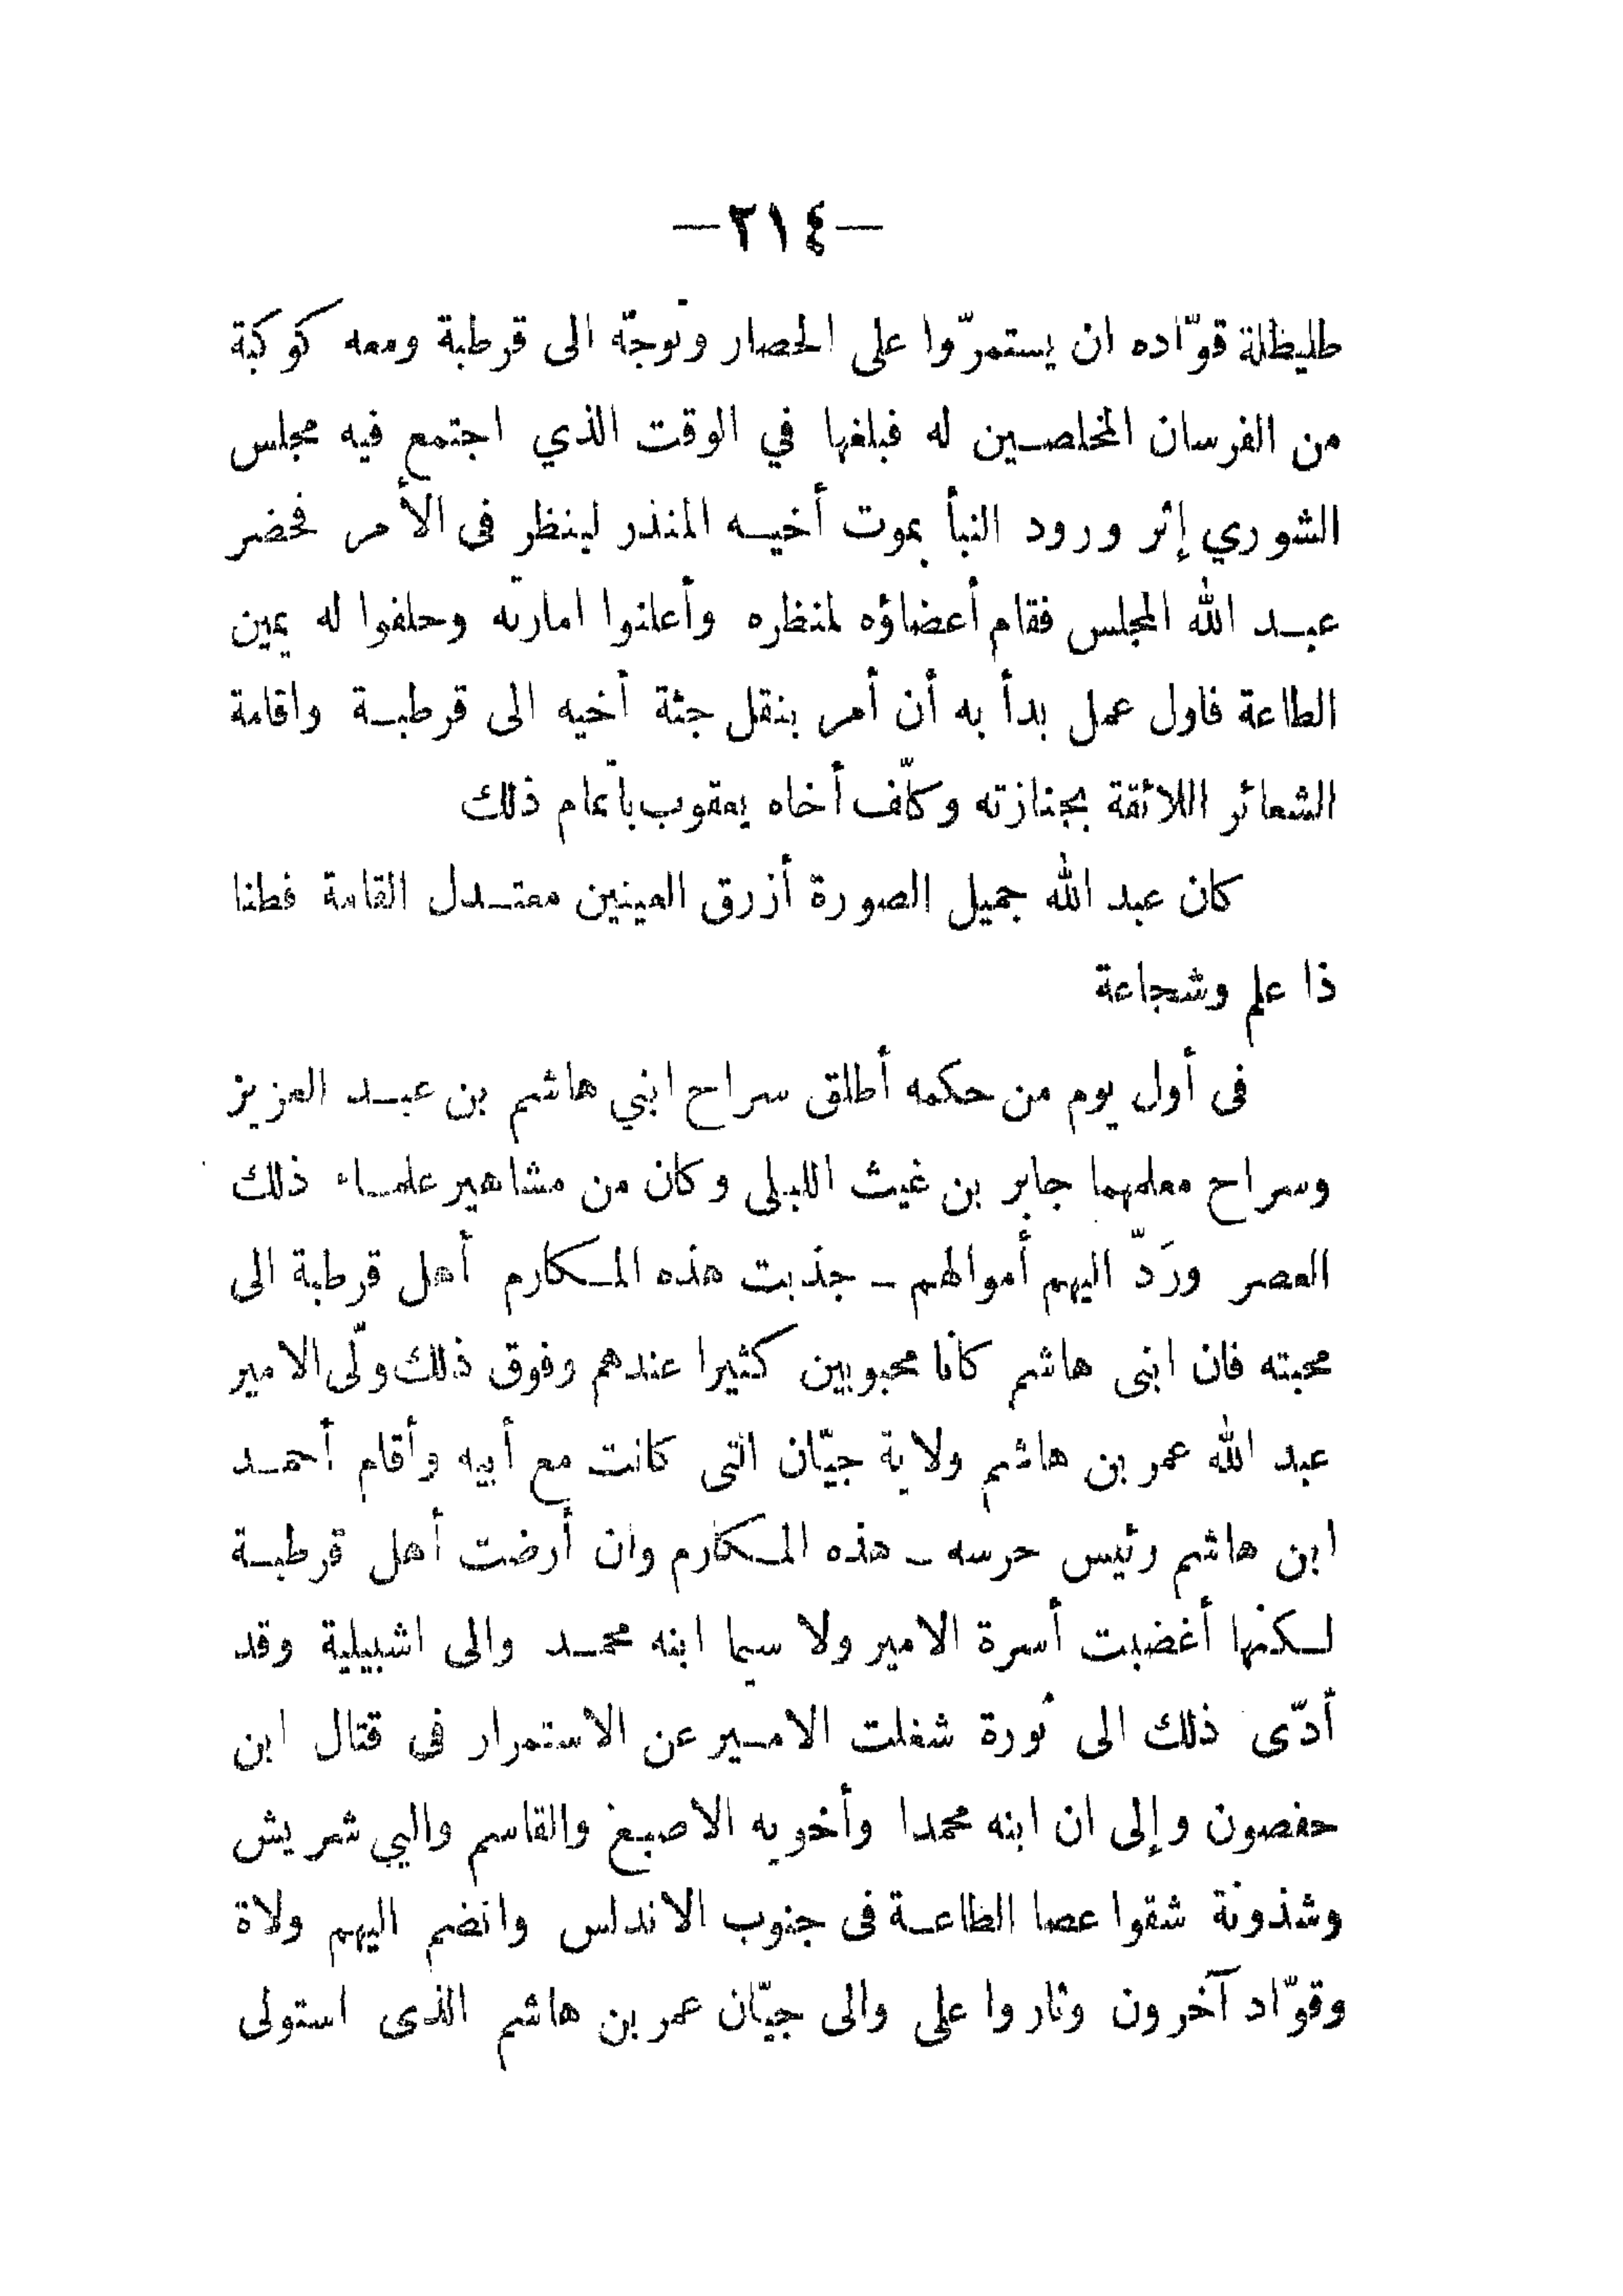 —٢١٤—
طليطلة قوّاده ان يستمرّوا على الحصار وتوجّه الى قرطبة ومعه كوكبة
من الفرسان المخلصين له فبلغها في الوقت الذي اجتمع فيه مجلس
الشوري إثر ورود النبأ بموت أخيه المنذر لينظر فى الأمر فحضر
عبد الله المجلس فقام أعضاؤه لمنظره وأعلنوا امارته وحلفوا له يمين
الطاعة فاول عمل بدأ به أن أمر بنقل جثة أخيه الى قرطبة واقامة
الشعائر اللائقة بجنازته وكلّف أخاه يعقوب باتمام ذلك
كان عبد الله جميل الصورة أزرق العينين معتدل القامة فطنا
ذا علم وشجاعة
فى أول يوم من حكمه أطلق سراح ابني هاشم بن عبد العزيز
وسراح معلمهما جابر بن غيث اللبلى وكان من مشاهير علماء ذلك
العصر ورَدّ اليهم أموالهم ــ جذبت هذه المكارم أهل قرطبة الى
محبته فان ابنى هاشم كانا محبوبين كثيرا عندهم وفوق ذلك ولّى الامير
عبد الله عمر بن هاشم ولاية جيّان التى كانت مع أبيه وأقام أحمد
ابن هاشم رئيس حرسه ــ هذه المكارم وان أرضت أهل قرطبة
لكنها أغضبت أسرة الامير ولا سيما ابنه محمد والى اشبيلية وقد
أدّى ذلك الى ثورة شغلت الامير عن الاستمرار فى قتال ابن
حفصون وإلى ان ابنه محمدا وأخويه الاصبغ والقاسم واليي شريش
وشذونة شقوا عصا الطاعة فى جنوب الاندلس وانضم اليهم ولاة
وقوّاد آخرون وثاروا على والى جيّان عمر بن هاشم الذى استولى